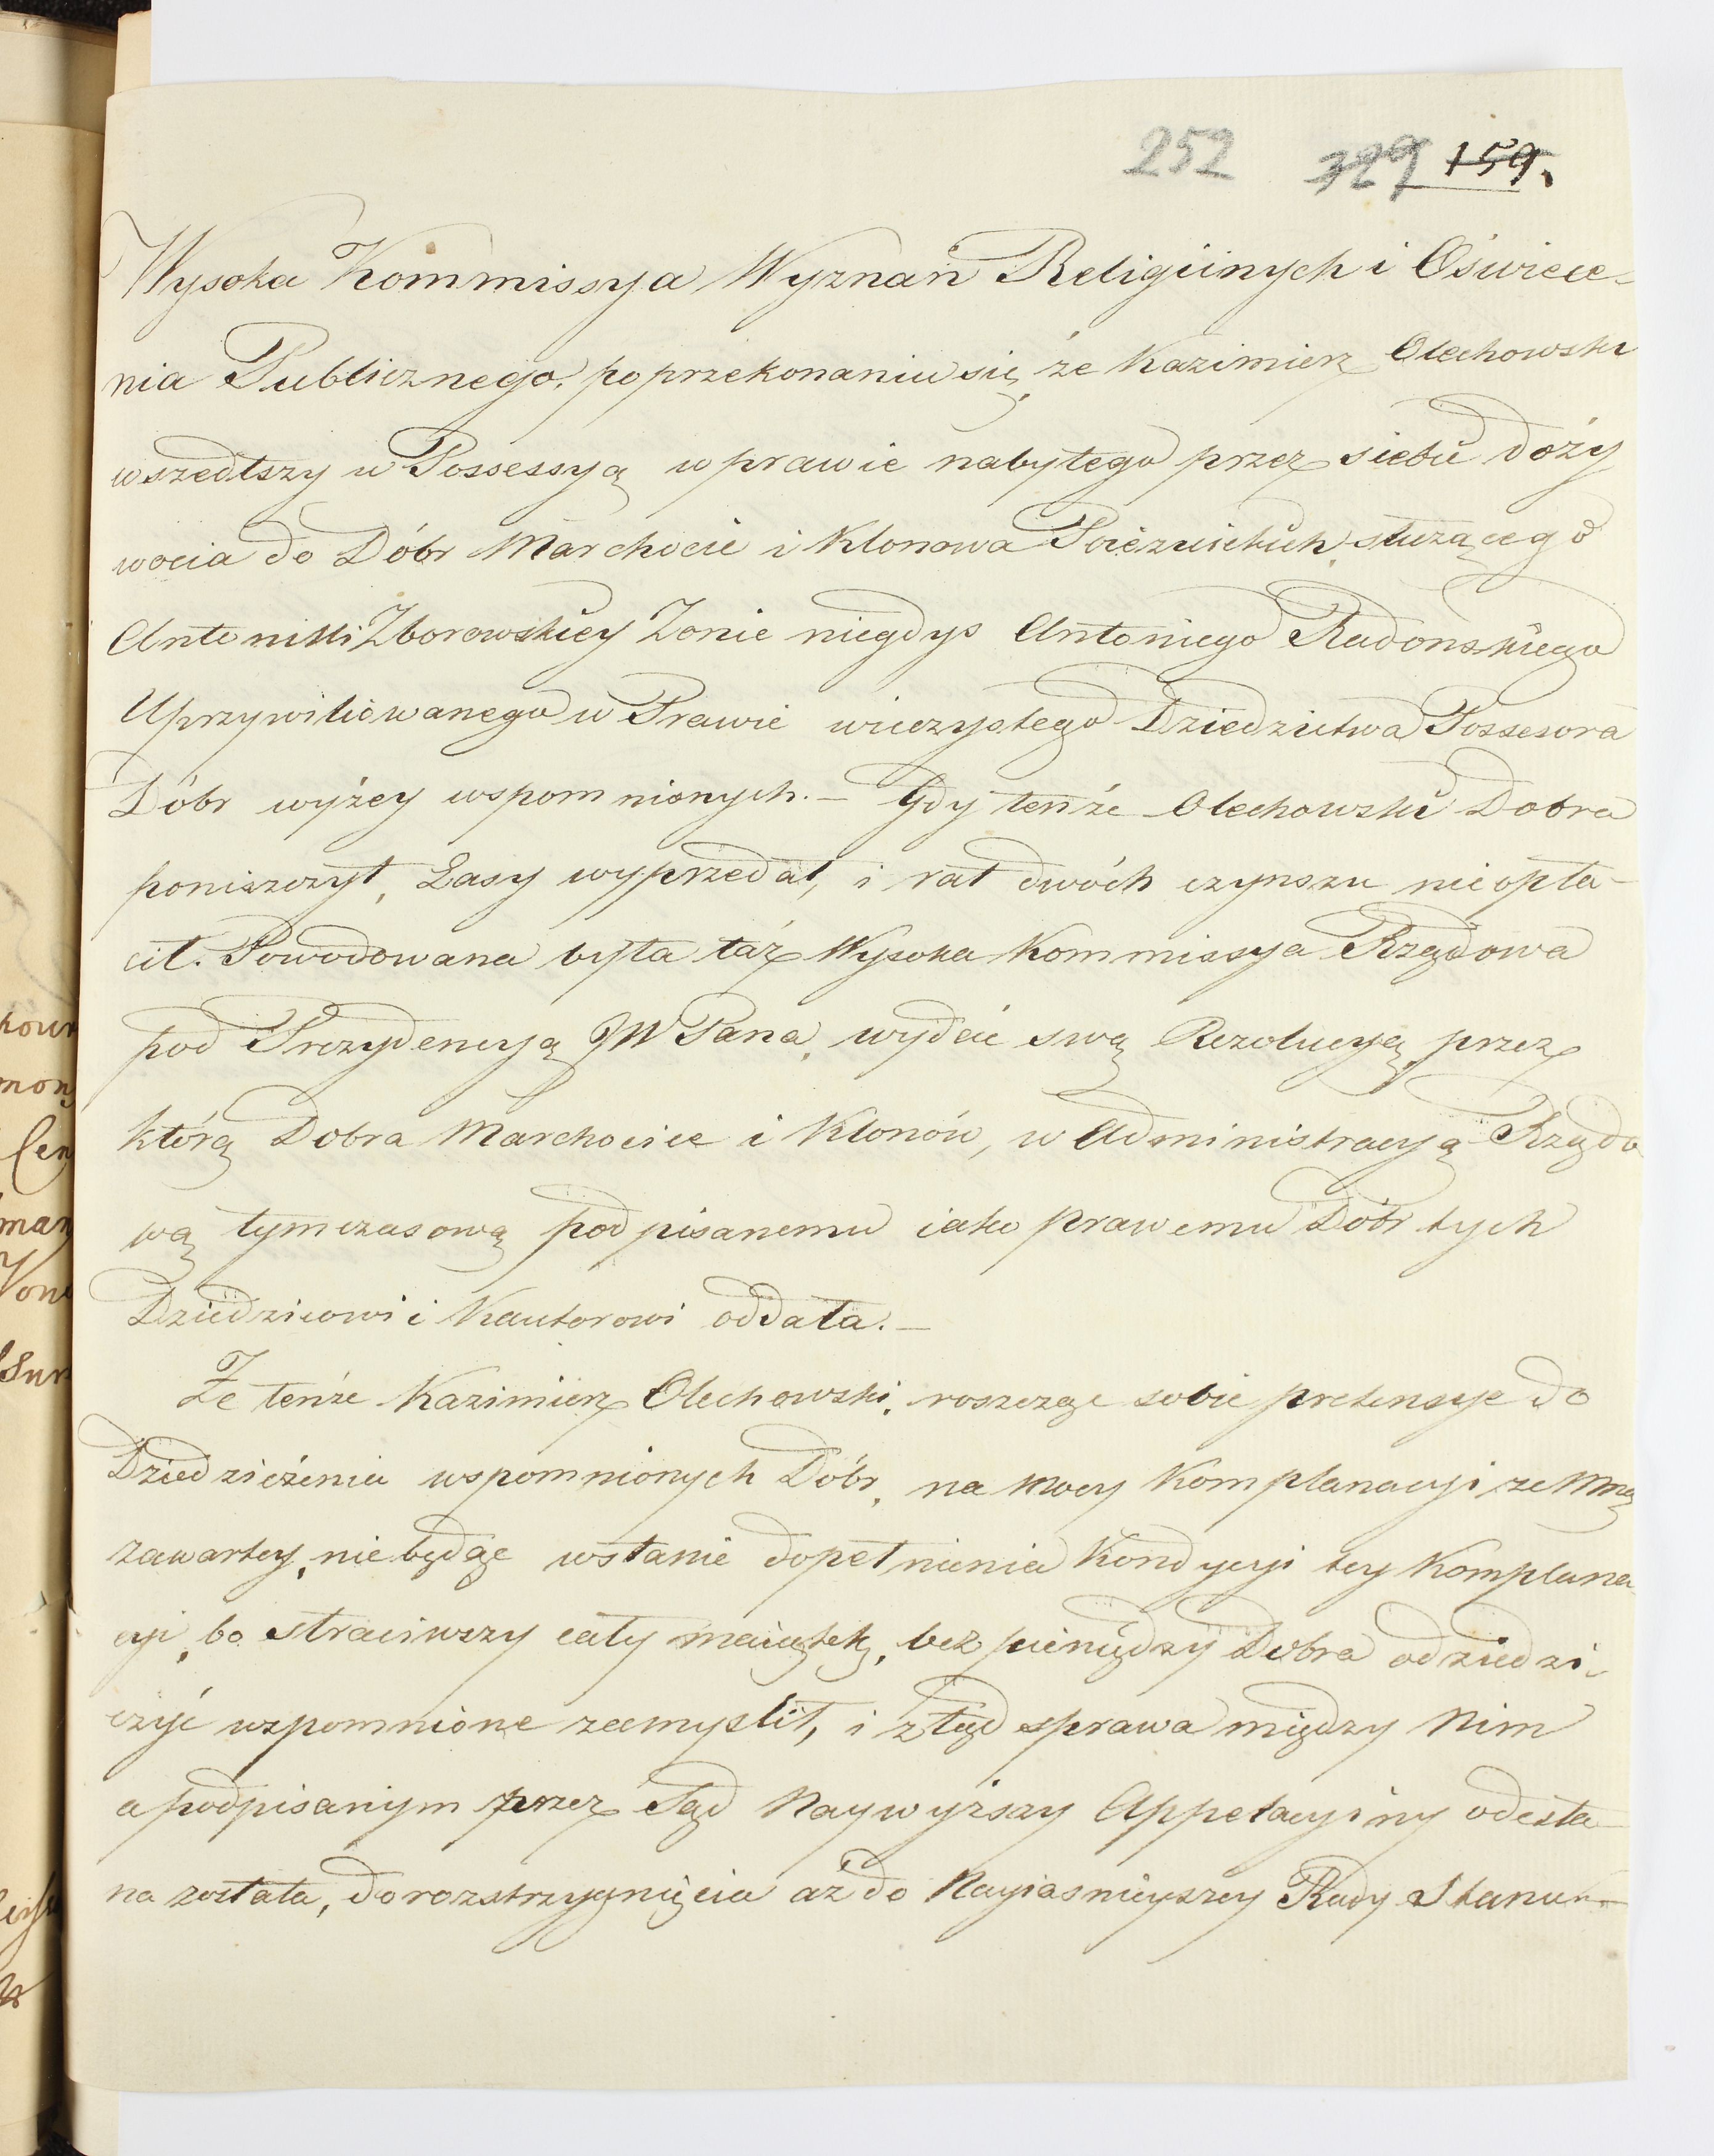 252 329 159.
Wysoka Kommissya Wyznań Religiinych i Oświece-
nia Publicznego, po przekonaniu się, że Kazimierz Olechowski
wszedłszy w Possessyą w prawie nabytego przez siebie doży
wocia do Dóbr Marchocie i Klonowa Poiezuickich, służącego
Antonilli Zborowskiey Zonie niegdys Antoniego Radonskiego
Uprzywiliowanego w Prawie wieczystego Dziedzictwa Possesora
Dóbr wyżey wspomnionych.— Gdy tenże Olechowski Dobra
poniszczył, Lasy wyprzedał, i rat dwóch czynszu nieopła-
cił. Powodowana była taż Wysoka Kommissya Rządowa
pod Prezydencyą JW Pana, wydać swą Rezolucyą, przez
którą Dobra Marchocice i Klonów, w Administracyą Rządo
wą tymczasową podpisanemu iako prawemu Dóbr tych
Dziedzicowi i Kautorowi oddała.—
Że tenże Kazimierz Olechowski, roszcząc sobie pretensye do
Dziedziczenia wspomnionych Dóbr, na mocy Komplanacyi ze Mną
zawartey, nie będąc wstanie dopełnienia Kondycyi tey Komplana
cyi, bo straciwszy cały maiątek, bez pieniędzy Dobra odziedzi-
czyć wzpomnione zamyslił, i ztąd sprawa między Nim
a podpisanym przez Sąd Naywyższy Appelacyiny odesła-
na została, do rozstrzygnięcia aż do Nayiasnieyszey Rady Stanu—
kown
mon